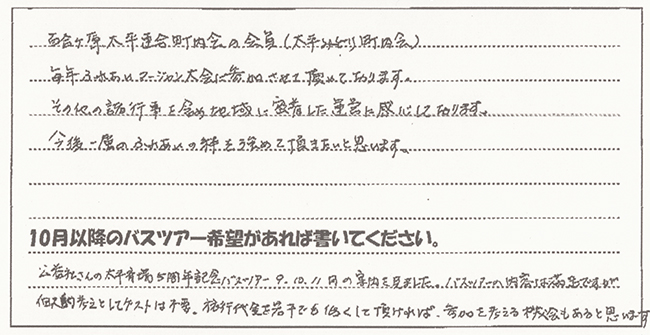 百合が原太平連合町内会の会員(太平みどり町内会)
毎年ふれあいマージャン大会に参加させて頂いております。
その他の諸行事を含め地域に密着した運営に感心しております。
今後一層のふれあいの絆を強めて頂きたいと思います。
10月以降のバスツアー希望があれば書いてください。
公益社さんの太平斎場5周年記念バスツアー9.10.11月の案内を見ました。バスツアーの内容は満足ですが
個人的考えとしてゲストは不要。旅行代金を若干でも低くして頂ければ、参加を考える機会もあると思います